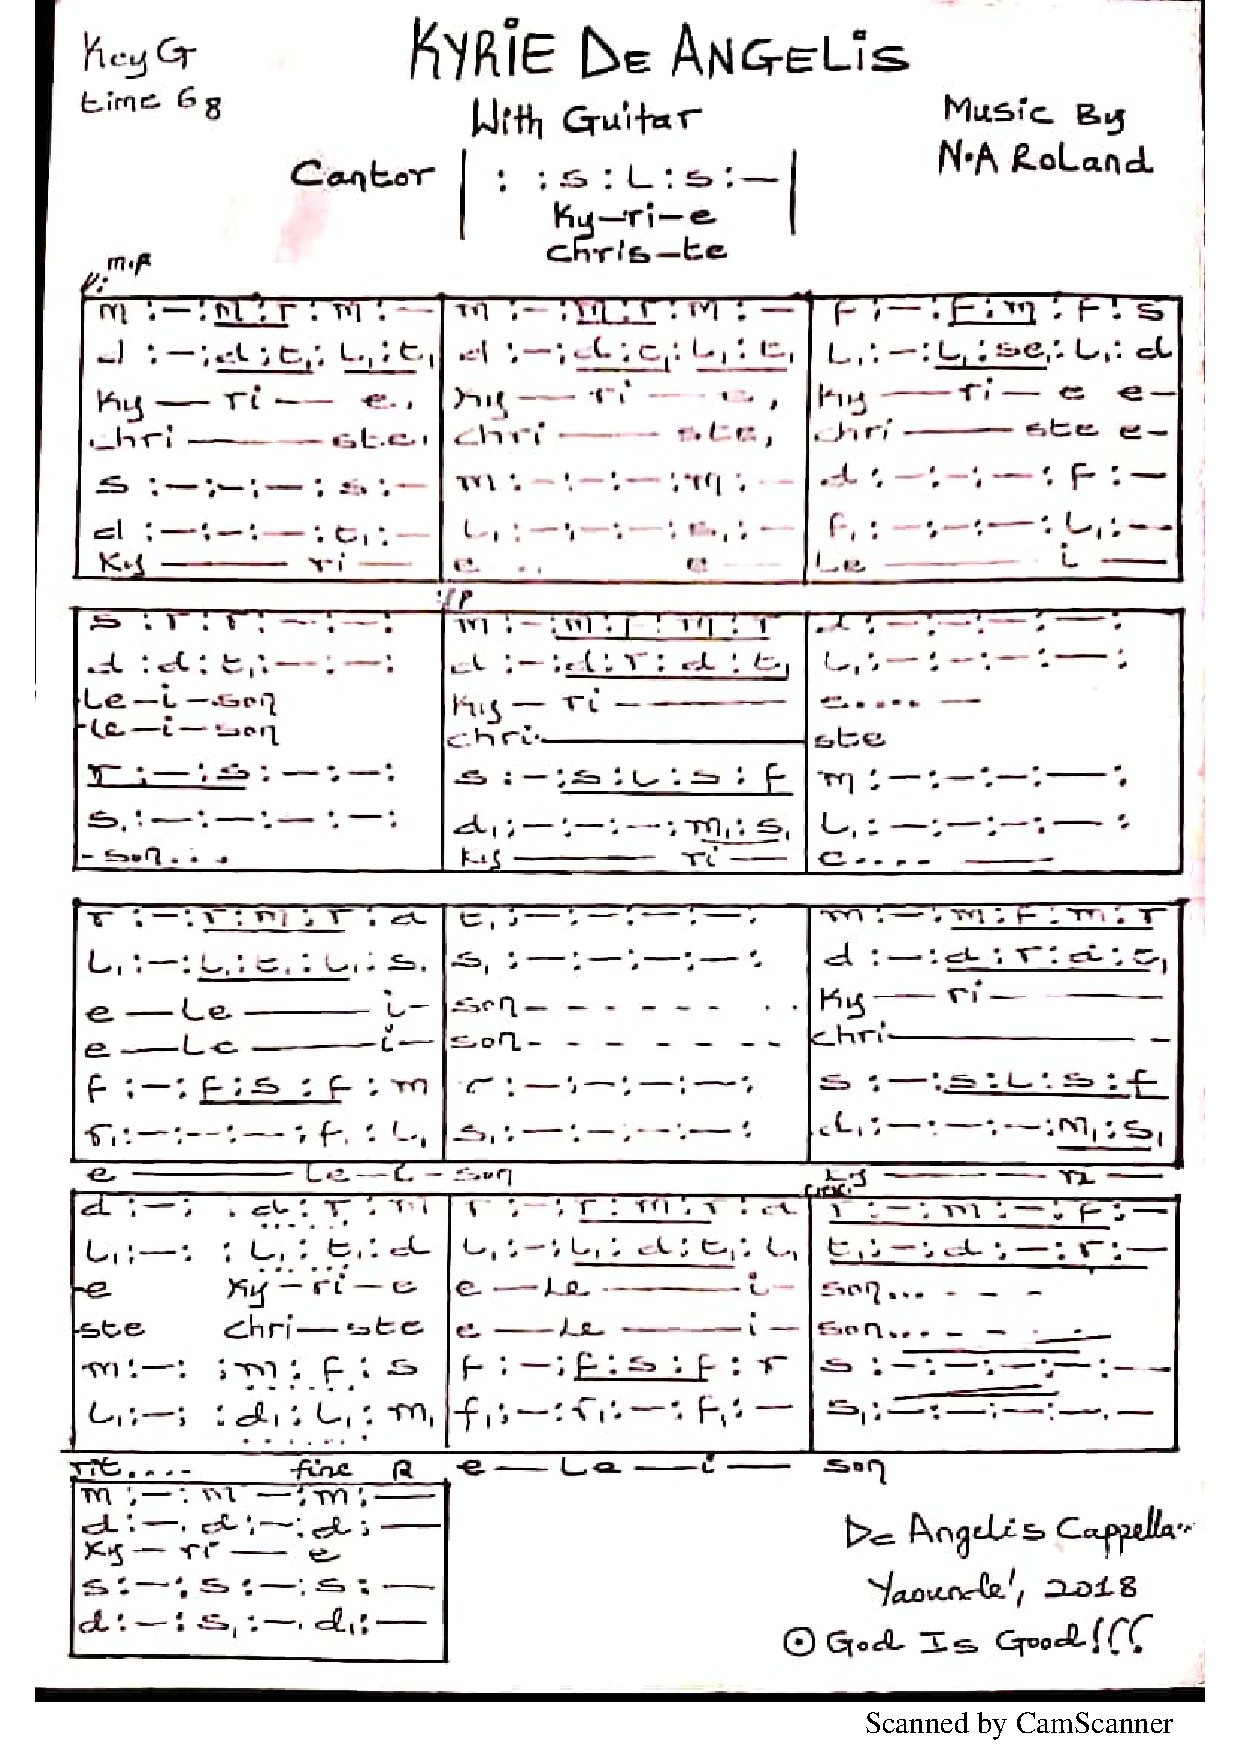 Key G
time 6 8
KYRIE DE ANGELIS
With Guitar
Music By
N.A RoLand
Cantor | : : s : L : s : — |
Ky—ri—e
chris—te
m.f
m :—: m : r : m :— | m :—: m : r : m :— | f :—: f : m : f : s
d :—: d : t, : L, : t, | d :—: d : t, : L, : t, | L, :—: L, : se, : L, : d
Ky — ri — e, | Ky — ri — e, | Ky — ri — e e-
chri — ste, | chri — ste, | chri — ste e-
s :—:—:—: s :— | m :—:—:—: m :— | d :—:—:—: f :—
d :—:—:—: t, :— | L, :—:—:—: s, :— | f, :—:—:—: L, :—
Ky — ri — | e .. e — | Le — i —
:/P
s : r : r :—:—: | m :—: m : r : m : r | d :—:—:—:—:
d : d : t, :—:—: | d :—: d : r : d : t, | L, :—:—:—:—:
Le-i-son | Ky — ri — | e..... —
-le-i-son | chri — | ste
r :—: s :—:—: | s :—: s : L : s : f | m :—:—:—:—:
s, :—:—:—:—: | d, :—:—:—: m, : s, | L, :—:—:—:—:
- son... | Ky — ri — | e.... —
r :—: r : m : r : d | t, :—:—:—:—: | m :—: m : f : m : r
L, :—: L, : t, : L, : s, | s, :—:—:—:—: | d :—: d : r : d : t,
e — Le — i- | son- - - - - . . | Ky — ri- —
e — Le — i- | son- - - - - - - | chri — -
f :—: f : s : f : m | r :—:—:—:—: | s :—: s : L : s : f
r, :—:—:—: f, : L, | s, :—:—:—:—: | d, :—:—:—: m, : s,
e — Le-i-son | Ky — ri —
d :—: . d : r : m | r :—: r : m : r : d | r :—: m :—: f :—
L, :—: : L, : t, : d | L, :—: L, : d : t, : L, | t, :—: d :—: r :—
-e Ky-ri-e | e — Le — i- | son... - - -
ste chri—ste | e — Le — i- | son... - -
m :—: : m : f : s | f :—: f : s : f : r | s :—:—:—:—:—
L, :—: : d, : L, : m, | f, :—: r, :—: f, :— | s, :—:—:—:—.—
rit.... fine R e — Le — i — son
m :—: m —: m :—
d :—. d :—: d :—
Ky — ri — e
s :—: s :—: s :—
d :—: s, :—. d, :—
De Angelis Cappella..
Yaounde', 2018
God Is Good!!!
Scanned by CamScanner